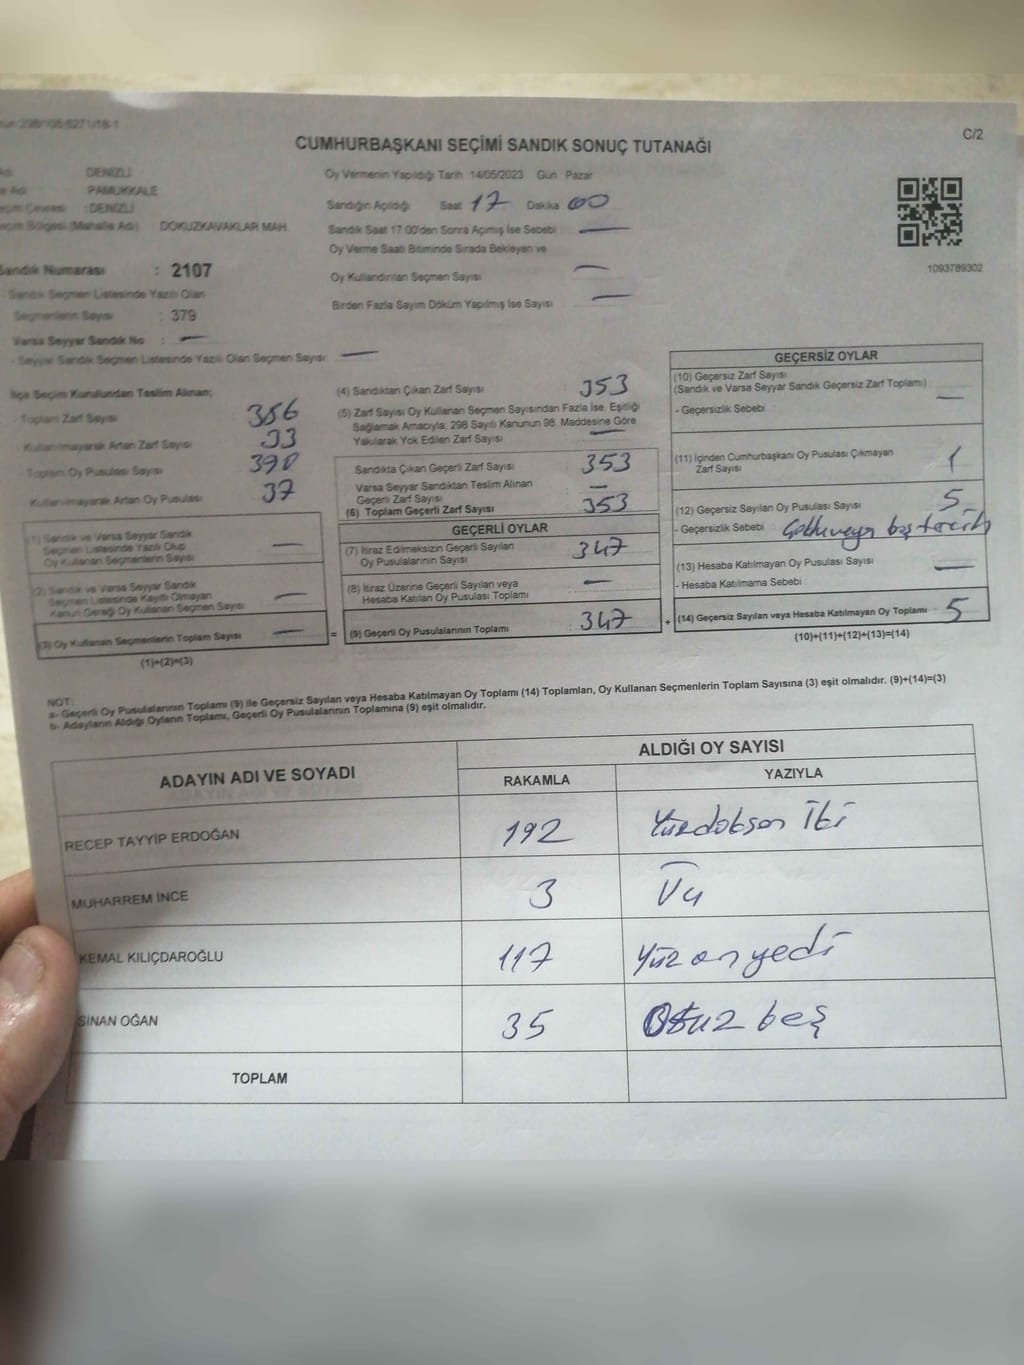 C/2
CUMHURBAŞKANI SEÇİMİ SANDIK SONUÇ TUTANAĞI
DENİZLİ
PAMUKKALE
: DENİZLİ
(Mahalle Adı) DOKUZKAVAKLAR MAH.
Sandık Numarası : 2107
Sandık Seçmen Listesinde Yazılı Olan
Seçmenlerin Sayısı : 379
Varsa Seyyar Sandık No : —
- Seyyar Sandık Seçmen Listesinde Yazılı Olan Seçmen Sayısı: —
Oy Vermenin Yapıldığı Tarih 14/05/2023 Gün Pazar
Sandığın Açıldığı Saat 17 Dakika 00
Sandık Saat 17:00'den Sonra Açımış İse Sebebi —
Oy Verme Saati Bitiminde Sırada Bekleyen ve
Oy Kullandırılan Seçmen Sayısı —
Birden Fazla Sayım Döküm Yapılmış İse Sayısı —
1093789302
İlçe Seçim Kurulundan Teslim Alınan;
- Toplam Zarf Sayısı 386
- Kullanılmayarak Artan Zarf Sayısı 33
- Toplam Oy Pusulası Sayısı 390
Kullanılmayarak Artan Oy Pusulası 37
(1) Sandık ve Varsa Seyyar Sandık
Seçmen Listesinde Yazılı Olup
Oy Kullanan Seçmenlerin Sayısı —
(2) Sandık ve Varsa Seyyar Sandık
Seçmen Listesinde Kayıtlı Olmayan
Kanun Gereği Oy Kullanan Seçmen Sayısı —
(3) Oy Kullanan Seçmenlerin Toplam Sayısı —
(1)+(2)=(3)
(4) Sandıktan Çıkan Zarf Sayısı 353
(5) Zarf Sayısı Oy Kullanan Seçmen Sayısından Fazla İse, Eşitliği
Sağlamak Amacıyla; 298 Sayılı Kanunun 98. Maddesine Göre
Yakılarak Yok Edilen Zarf Sayısı —
Sandıkta Çıkan Geçerli Zarf Sayısı 353
Varsa Seyyar Sandıktan Teslim Alınan
Geçerli Zarf Sayısı —
(6) Toplam Geçerli Zarf Sayısı 353
GEÇERLİ OYLAR
(7) İtiraz Edilmeksizin Geçerli Sayılan
Oy Pusulalarının Sayısı 347
(8) İtiraz Üzerine Geçerli Sayılan veya
Hesaba Katılan Oy Pusulası Toplamı —
= (9) Geçerli Oy Pusulalarının Toplamı : 347
GEÇERSİZ OYLAR
(10) Geçersiz Zarf Sayısı
(Sandık ve Varsa Seyyar Sandık Geçersiz Zarf Toplamı) —
- Geçersizlik Sebebi
(11) İçinden Cumhurbaşkanı Oy Pusulası Çıkmayan
Zarf Sayısı 1
(12) Geçersiz Sayılan Oy Pusulası Sayısı 5
- Geçersizlik Sebebi boş tercih
(13) Hesaba Katılmayan Oy Pusulası Sayısı —
- Hesaba Katılmama Sebebi
+ (14) Geçersiz Sayılan veya Hesaba Katılmayan Oy Toplamı 5
(10)+(11)+(12)+(13)=(14)
NOT:
a- Geçerli Oy Pusulalarının Toplamı (9) ile Geçersiz Sayılan veya Hesaba Katılmayan Oy Toplamı (14) Toplamları, Oy Kullanan Seçmenlerin Toplam Sayısına (3) eşit olmalıdır. (9)+(14)=(3)
b- Adayların Aldığı Oyların Toplamı, Geçerli Oy Pusulalarının Toplamına (9) eşit olmalıdır.
ADAYIN ADI VE SOYADI ALDIĞI OY SAYISI
RAKAMLA YAZIYLA
RECEP TAYYİP ERDOĞAN 192 Yüzdoksan İki
MUHARREM İNCE 3 Üç
KEMAL KILIÇDAROĞLU 117 Yüz on yedi
SİNAN OĞAN 35 Otuz beş
TOPLAM